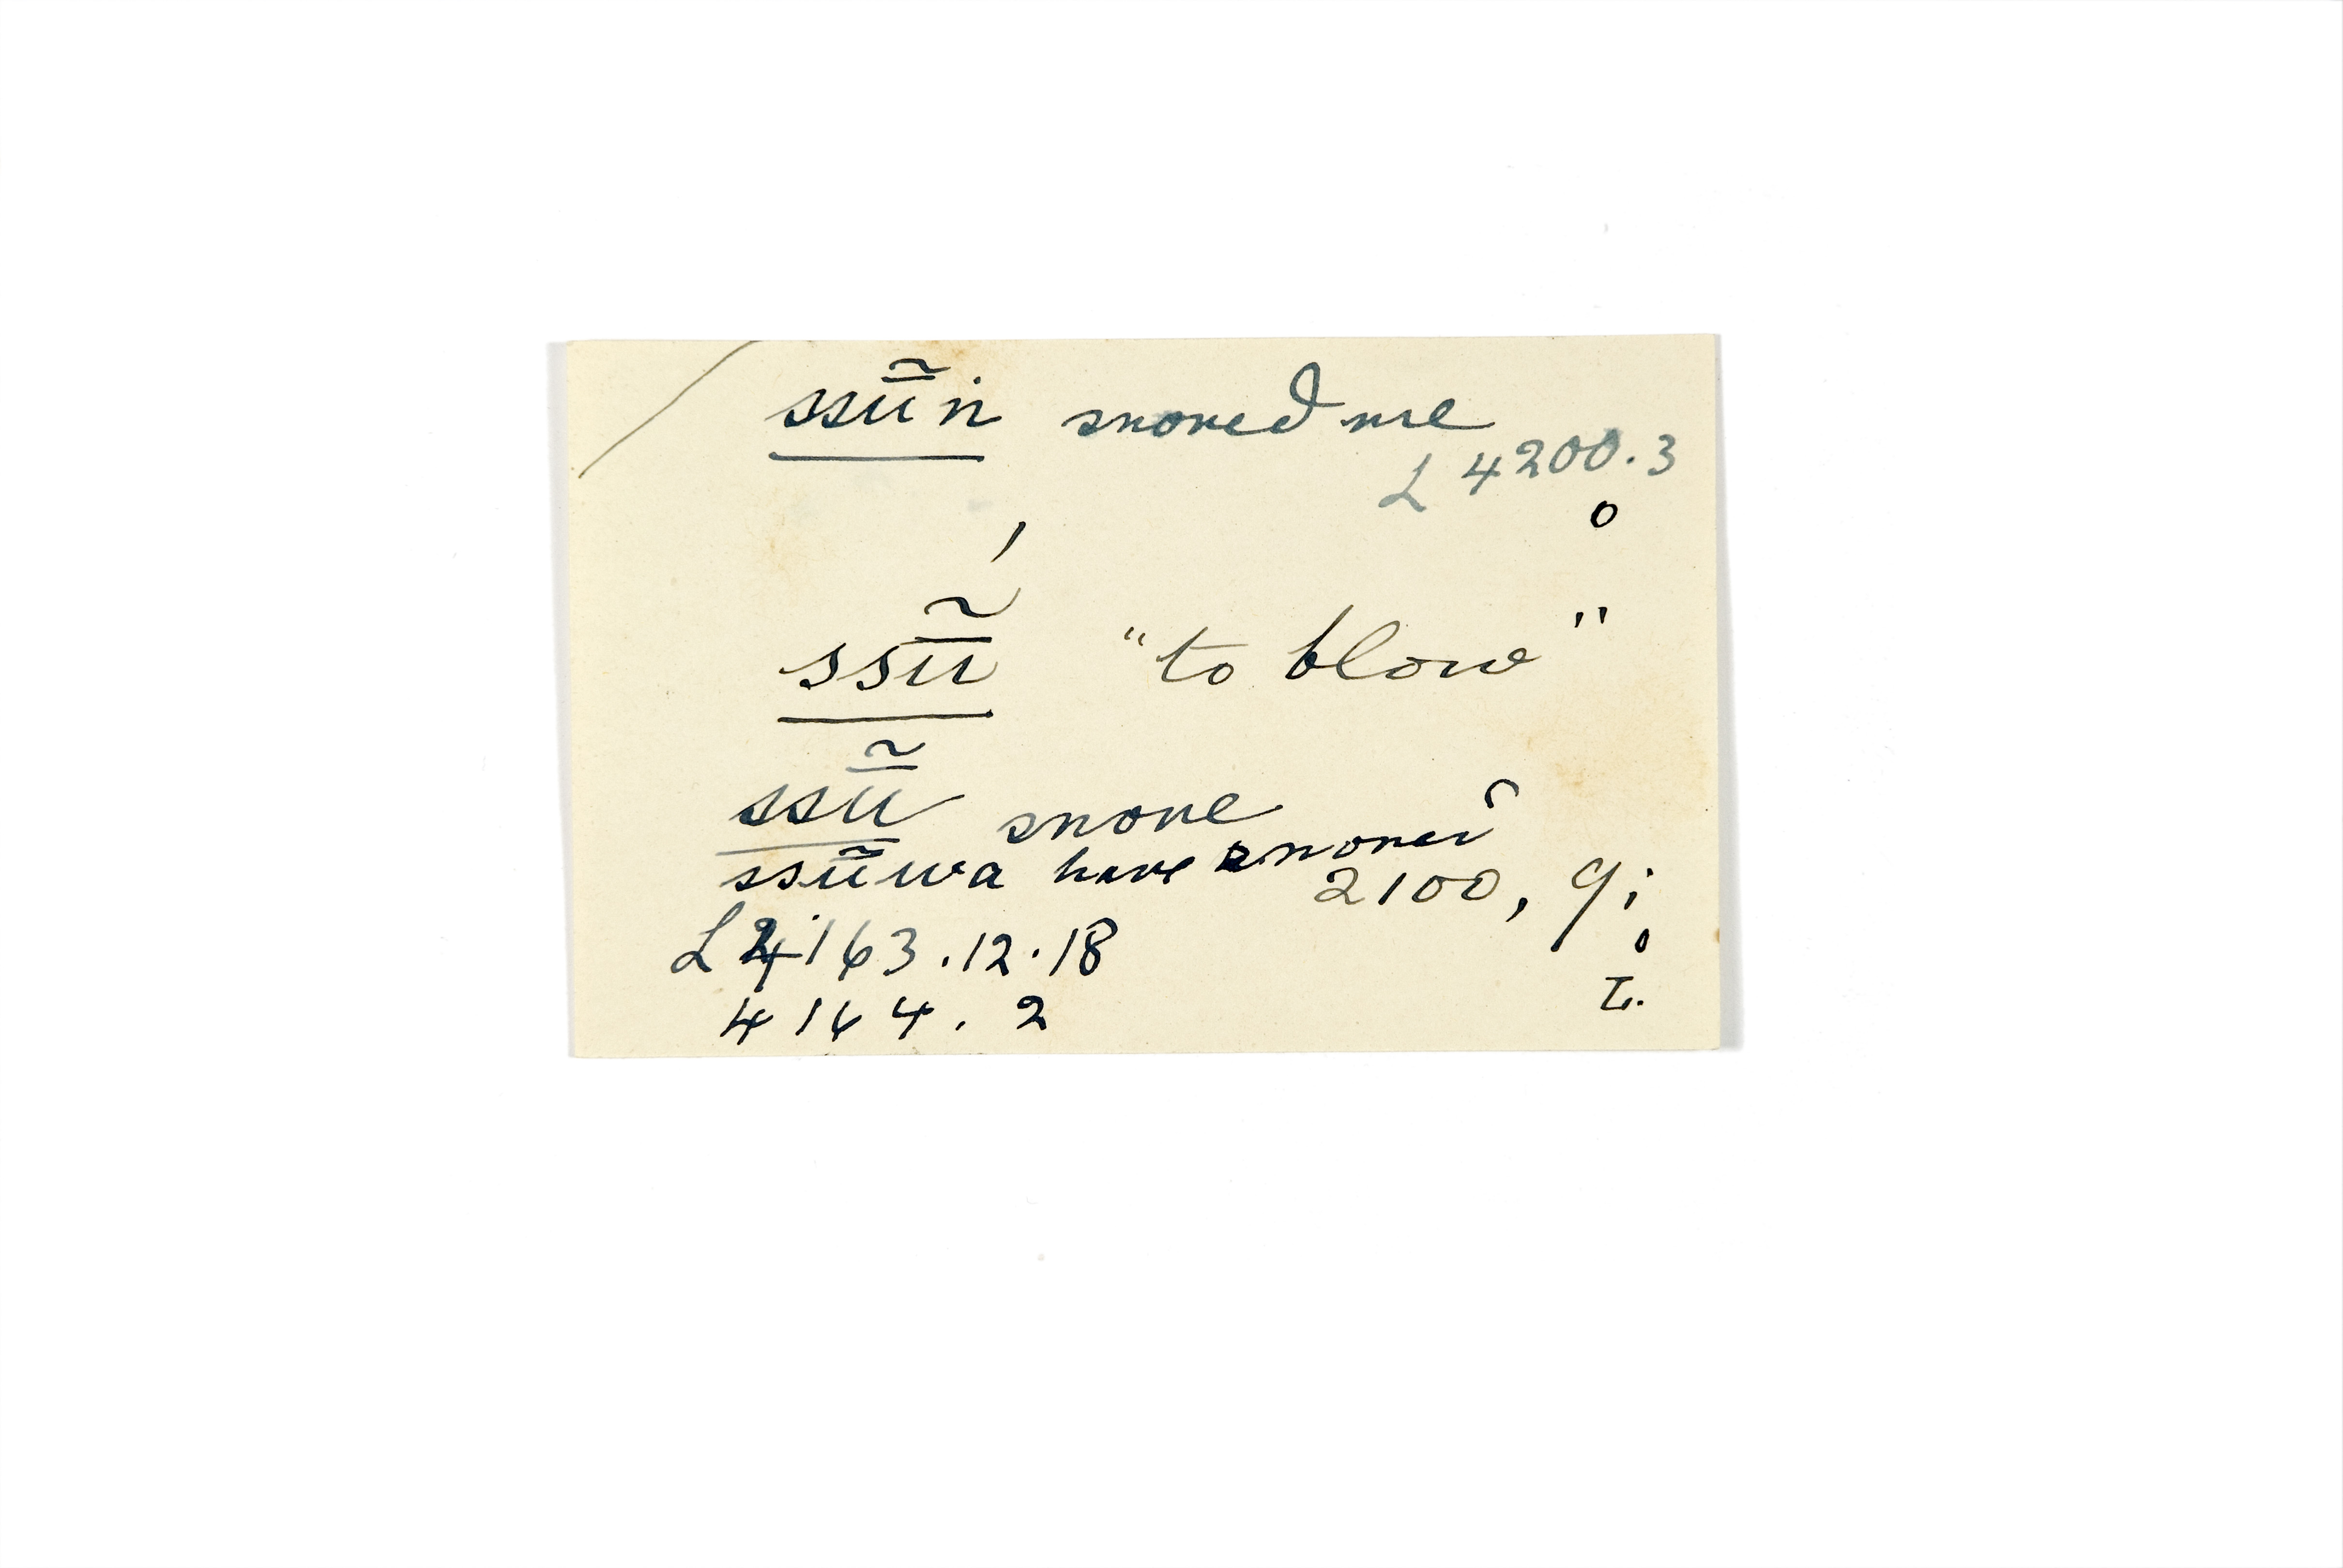 ssū̃ṅ snored me
L 4200.3
o
ssū̃́ "to blow"
ssū̃ snore
ssū̃wa have snored
2100, 9;
L 4163.12.18
o
4164. 2